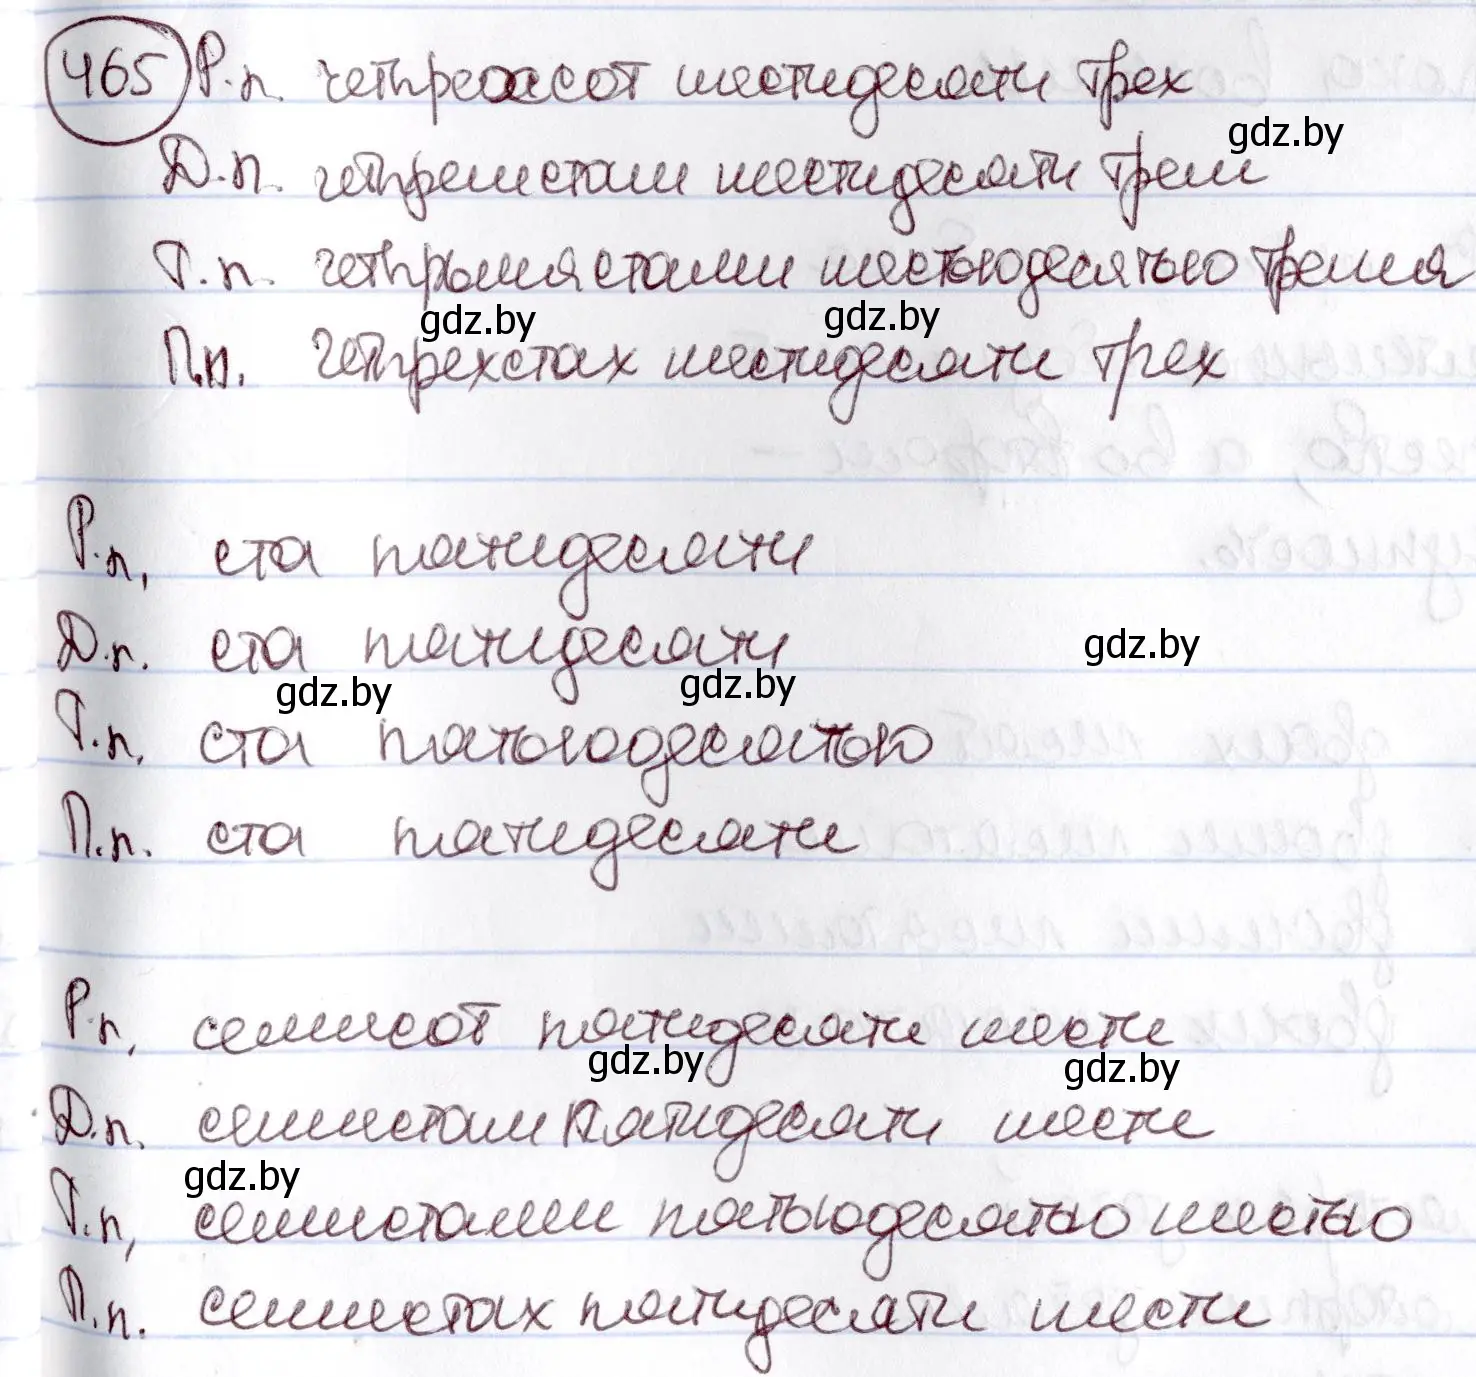 465 Р.п. четырехсот шестидесяти трех
gdz.by
Д.п. четыремстам шестидесяти трем
Т.п. четырьмястами шестьюдесятью тремя
gdz.by gdz.by
П.п. четырехстах шестидесяти трех
Р.п. ста пятидесяти
Д.п. ста пятидесяти
gdz.by
gdz.by gdz.by
Т.п. ста пятьюдесятью
П.п. ста пятидесяти
Р.п. семисот пятидесяти шести
gdz.by gdz.by
Д.п. семистам пятидесяти шести
gdz.by
Т.п. семистами пятьюдесятью шестью
П.п. семистах пятидесяти шести